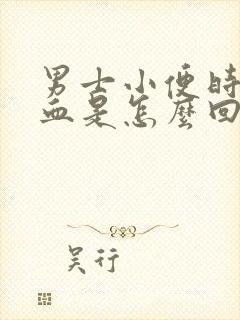 男士小便时
血是怎麼回
吴行